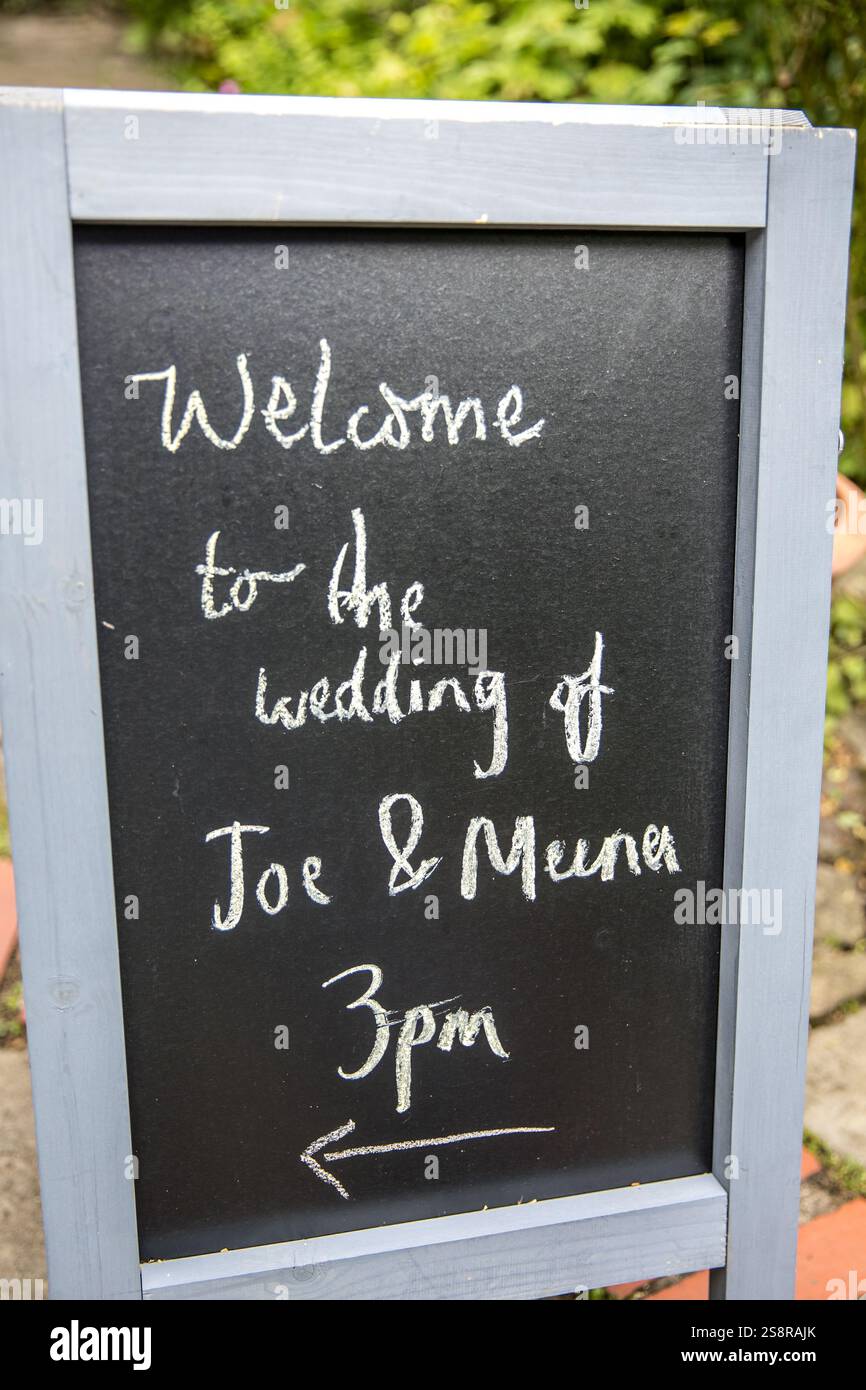 Welcome
to the
wedding of
Joe & Meena
3pm
←
alamy
Image ID: 2S8RAJK
www.alamy.com